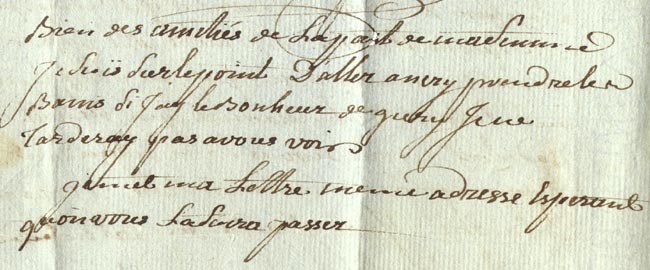 Bien des amitiés de La part de ma femme
Je suis sur le point D'aller a prendre les
Bains Si J'ay le Bonheur de guerir Je ne
Tarderay pas a vous voir
met ma Lettre meme adresse Esperant
qu'on vous La fera passer